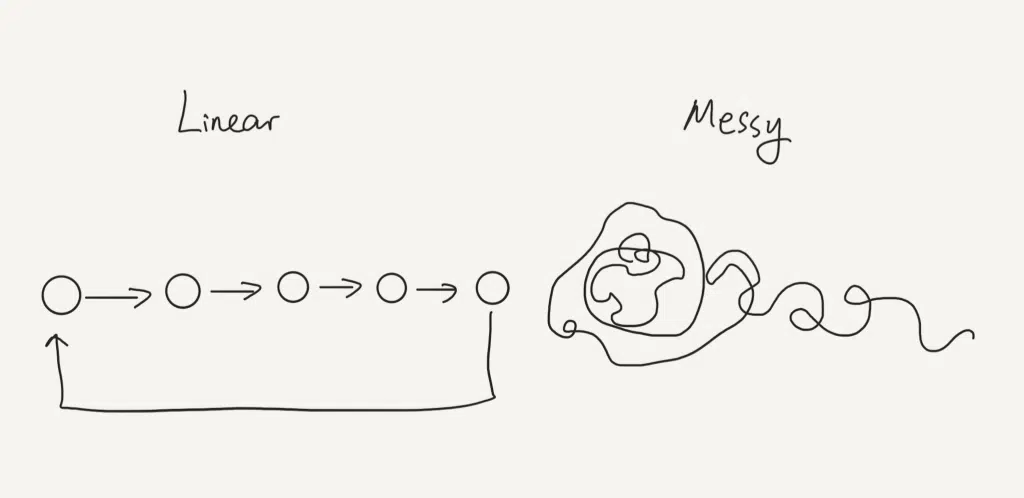 Linear
Messy